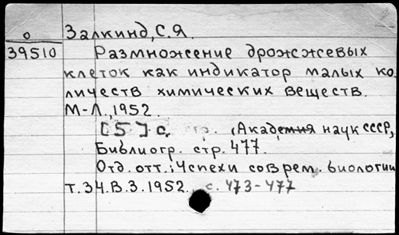 о Залкинд, С.Я.
39510 Размножение дрожжевых
клеток как индикатор малых ко
личеств химических веществ.
М-Л., 1952.
[5] с. стр. (Академия наук СССР,
Библиогр. стр. 477.
Отд. отт.: Успехи соврем. биологии
т. 34. В. 3. 1952. с. 473-477